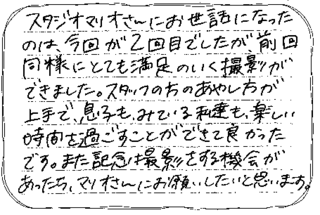 スタジオマリオさんにお世話になった
のは、今回が2回目でしたが前回
同様にとても満足のいく撮影が
できました。スタッフの方のあやし方が
上手で、息子も、みている私達も、楽しい
時間を過ごすことができて良かった
です。また記念撮影をする機会が
あったら、マリオさんにお願いしたいと思います。